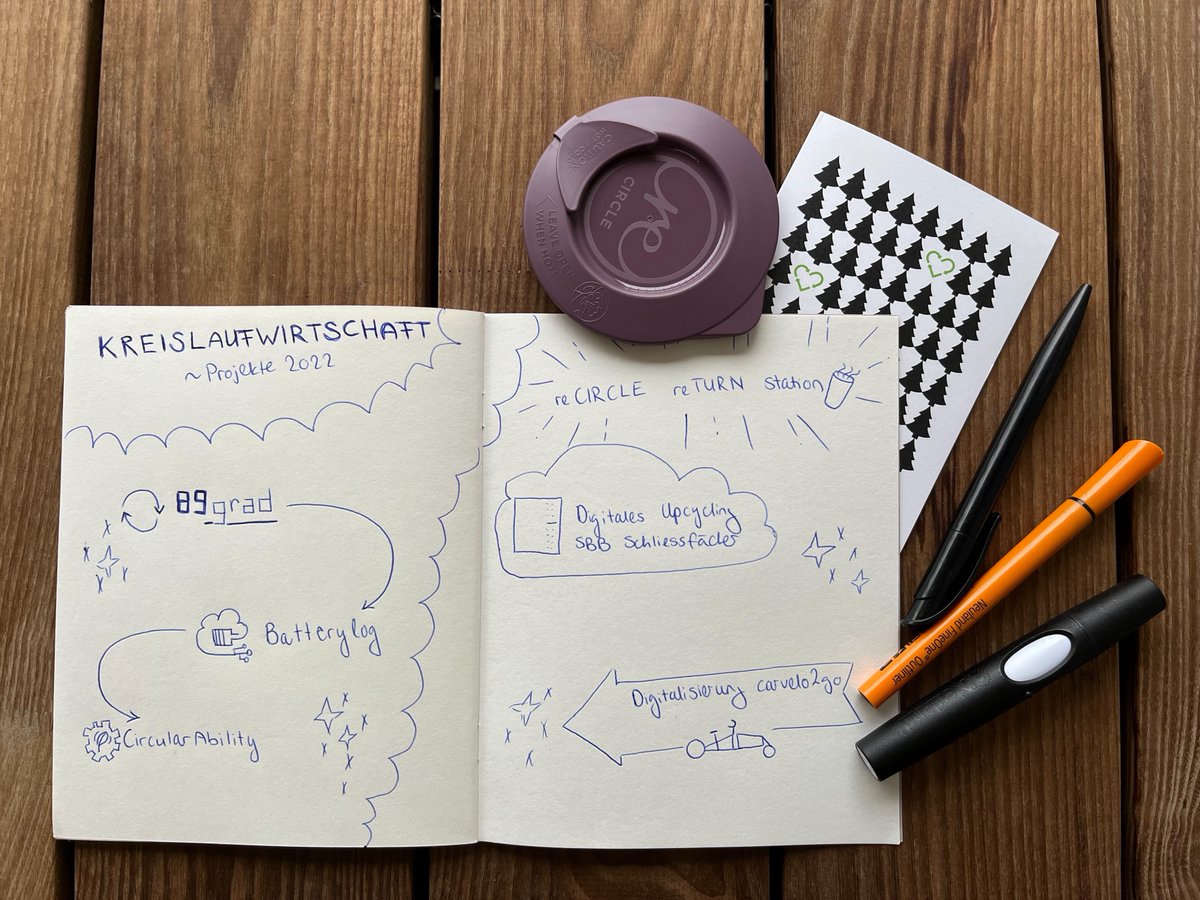 KREISLAUFWIRTSCHAFT
~Projekte 2022
89grad
Batterylog
CircularAbility
reCIRCLE reTURN Station
Digitales Upcycling
SBB Schliessfächer
Digitalisierung carvelo2go
CAUTION
HOT
re
CIRCLE
LEAVE OPEN
WHEN HOT!
Neuland FineOne® Outliner